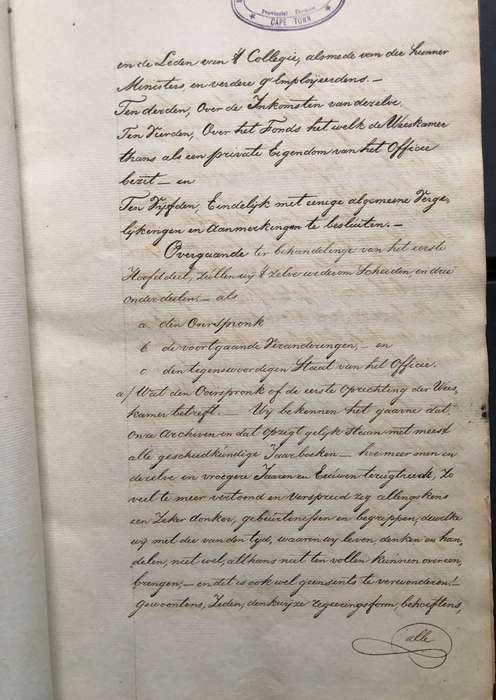 CAPE TOWN
en de Leden van 't Collegie, alsmede van die hunner
Ministers en verdere g'Employeerdens. —
Ten derden, Over de Inkomsten van dezelve
Ten Vierden, Over het Fonds het welk de Weeskamer
thans als een private Eigendom van het Officie
bezit — en
Ten Vyfden, Eindelyk met eenige algemeene Verge-
lykingen en aanmerkingen te besluiten. —
Overgaande ter behandelinge van het eerste
Hoofddeel, zullen wy 't zelve wederom Scheiden, en drie
onderdeelen; — als
a den Oorspronk
b de voortgaande Veranderingen, — en
c den tegenswoordigen Staat van het Officie.
a/ Wat den Oorspronk of de eerste oprechting der Wees-
kamer betreft. — Wy bekennen het gaarne dat
onze archiven in dat opzigt gelyk staan met meest
alle geschiedkundige Jaarboeken — hoe meer men in
dezelve en vroegere Jaaren en Eeuwen terugtreede, zo
veel te meer vertoond en verspreid zig allengskens
een zeker donker, gebeurtenissen en begrippen, dewelke
wy met die van den tyd, waaren wy leven, denken en han-
delen, niet wel, althans niet ten vollen kunnen overeen
brengen, — en det is ook wel geensints te verwonderen!
gewoontens, Zeden, denkwyze regeeringsform, behoeftens,
alle